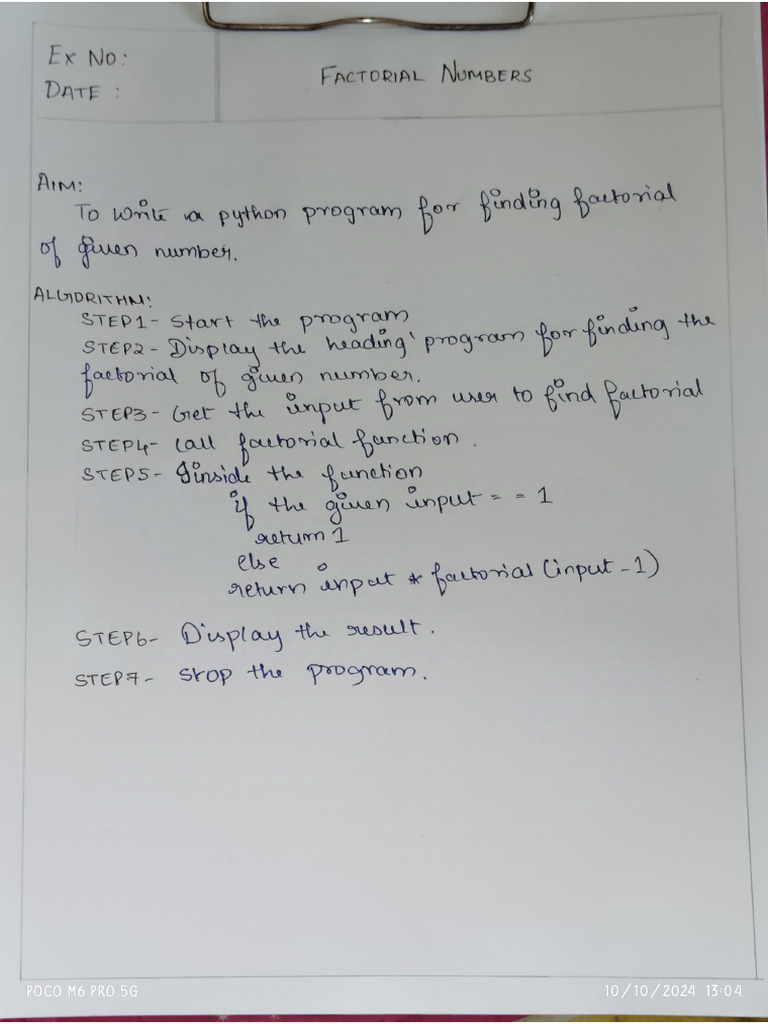 EX NO:
FACTORIAL NUMBERS
DATE :
AIM:
To write a python program for finding factorial
of given number.
ALGORITHM:
STEP1- Start the program
STEP2- Display the heading' program for finding the
factorial of given number.
STEP3- Get the input from user to find factorial
STEP4- Call factorial function.
STEP5- Inside the function
if the given input = = 1
return 1
else
return input * factorial (input - 1)
STEP6- Display the result.
STEP7- Stop the program.
POCO M6 PRO 5G
10/10/2024 13:04